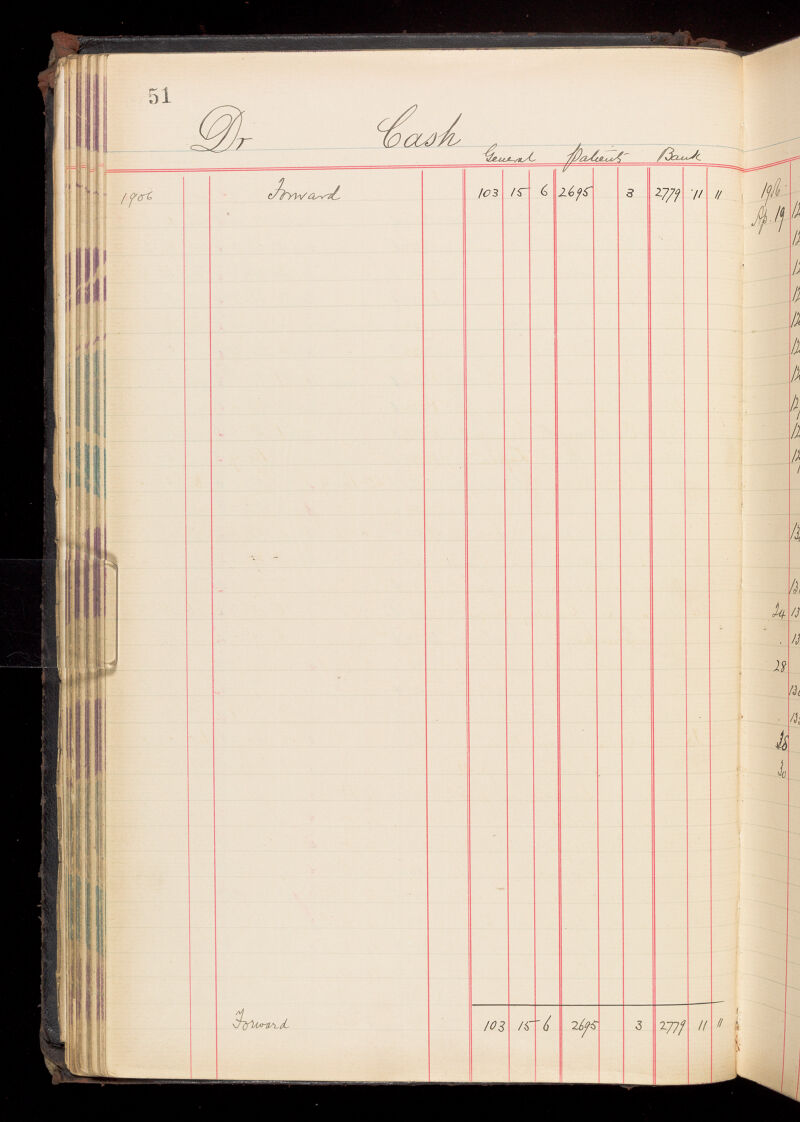 51
Dr Cash
General Patients Bank
1906 Forward 103 15 6 2695 3 2779 11 11
Forward 103 15 6 2695 3 2779 11 11
1906
Ap. 19
24
28
30